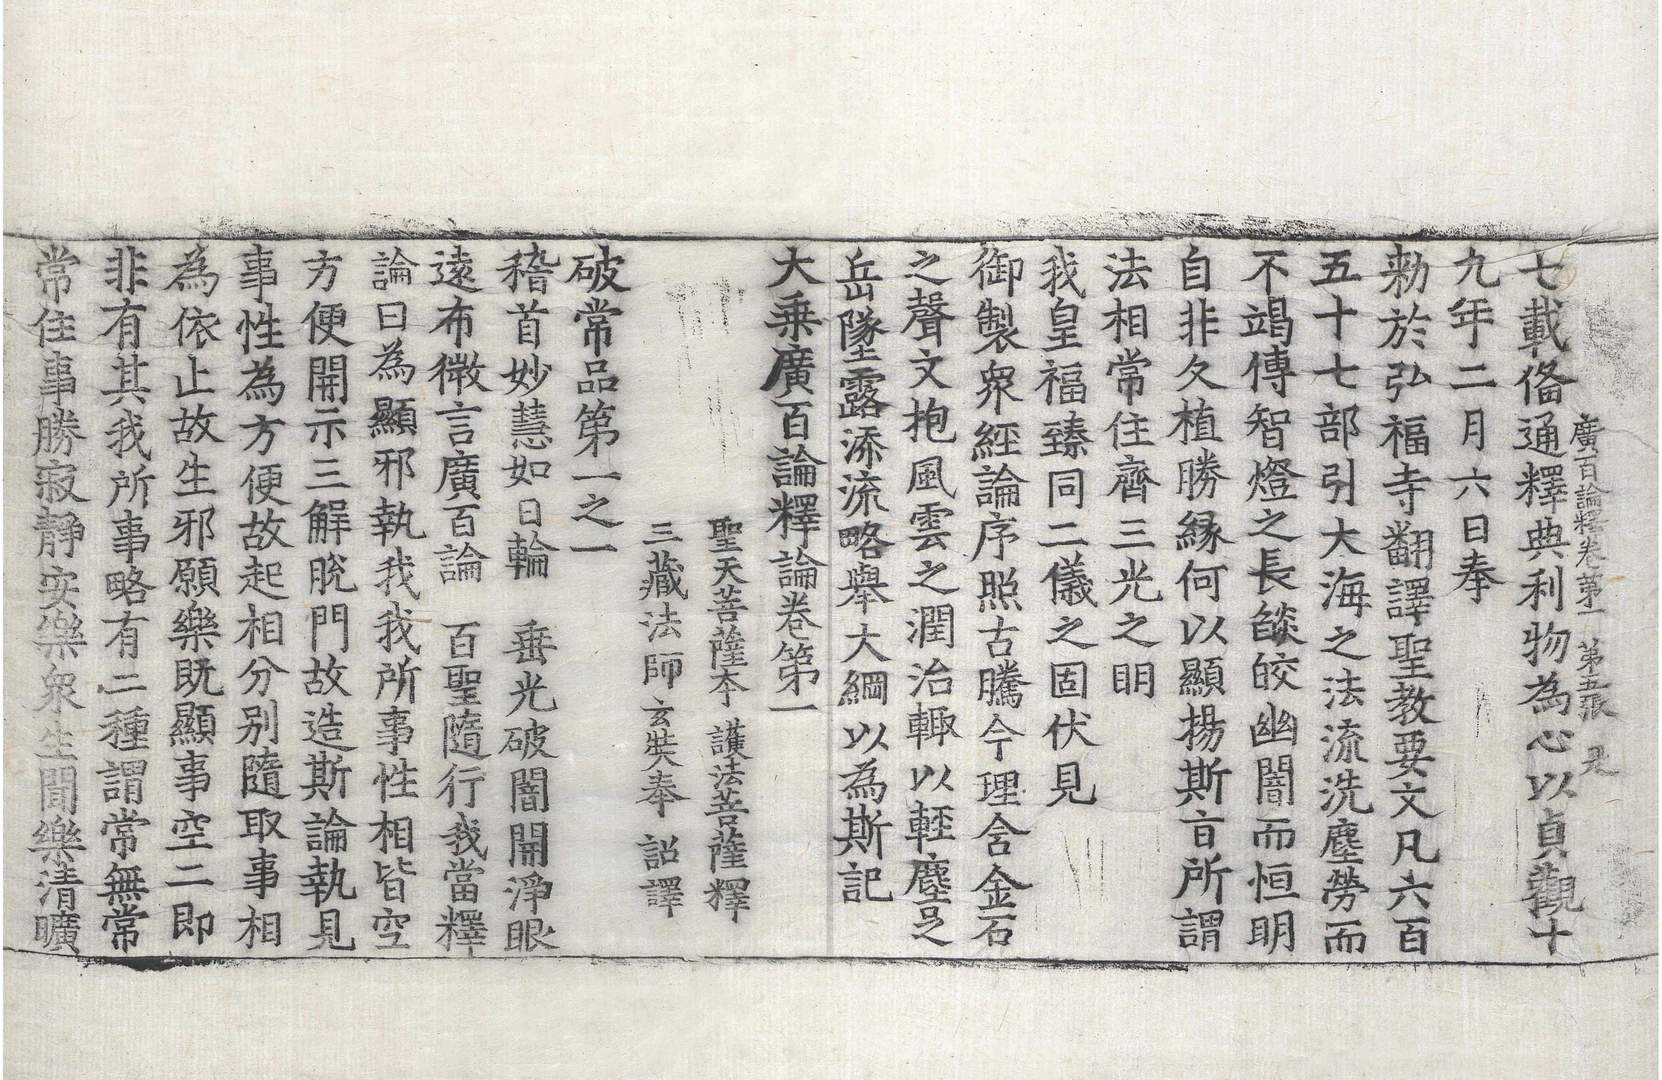 廣百論釋卷第一 第五張 是
七載俻通釋典利物為心以貞觀十
九年二月六日奉
勑於弘福寺翻譯聖教要文凡六百
五十七部引大海之法流洗塵勞而
不竭傳智燈之長燄皎幽闇而恒明
自非久植勝縁何以顯揚斯㫖所謂
法相常住齊三光之明
我皇福臻同二儀之固伏見
御製衆經論序照古騰今理含金石
之聲文抱風雲之潤治輙以輕塵足
岳墜露添流略舉大綱以為斯記
大乘廣百論釋論卷第一
聖天菩薩本 護法菩薩釋
三藏法師玄奘奉 詔譯
破常品第一之一
稽首妙慧如日輪 垂光破闇開淨眼
遠布微言廣百論 百聖隨行我當釋
論曰為顯邪執我我所事性相皆空
方便開示三解脫門故造斯論執見
事性為方便故起相分別隨取事相
為依止故生邪願樂既顯事空二即
非有其我所事略有二種謂常無常
常住事勝寂靜安樂衆生聞樂清曠